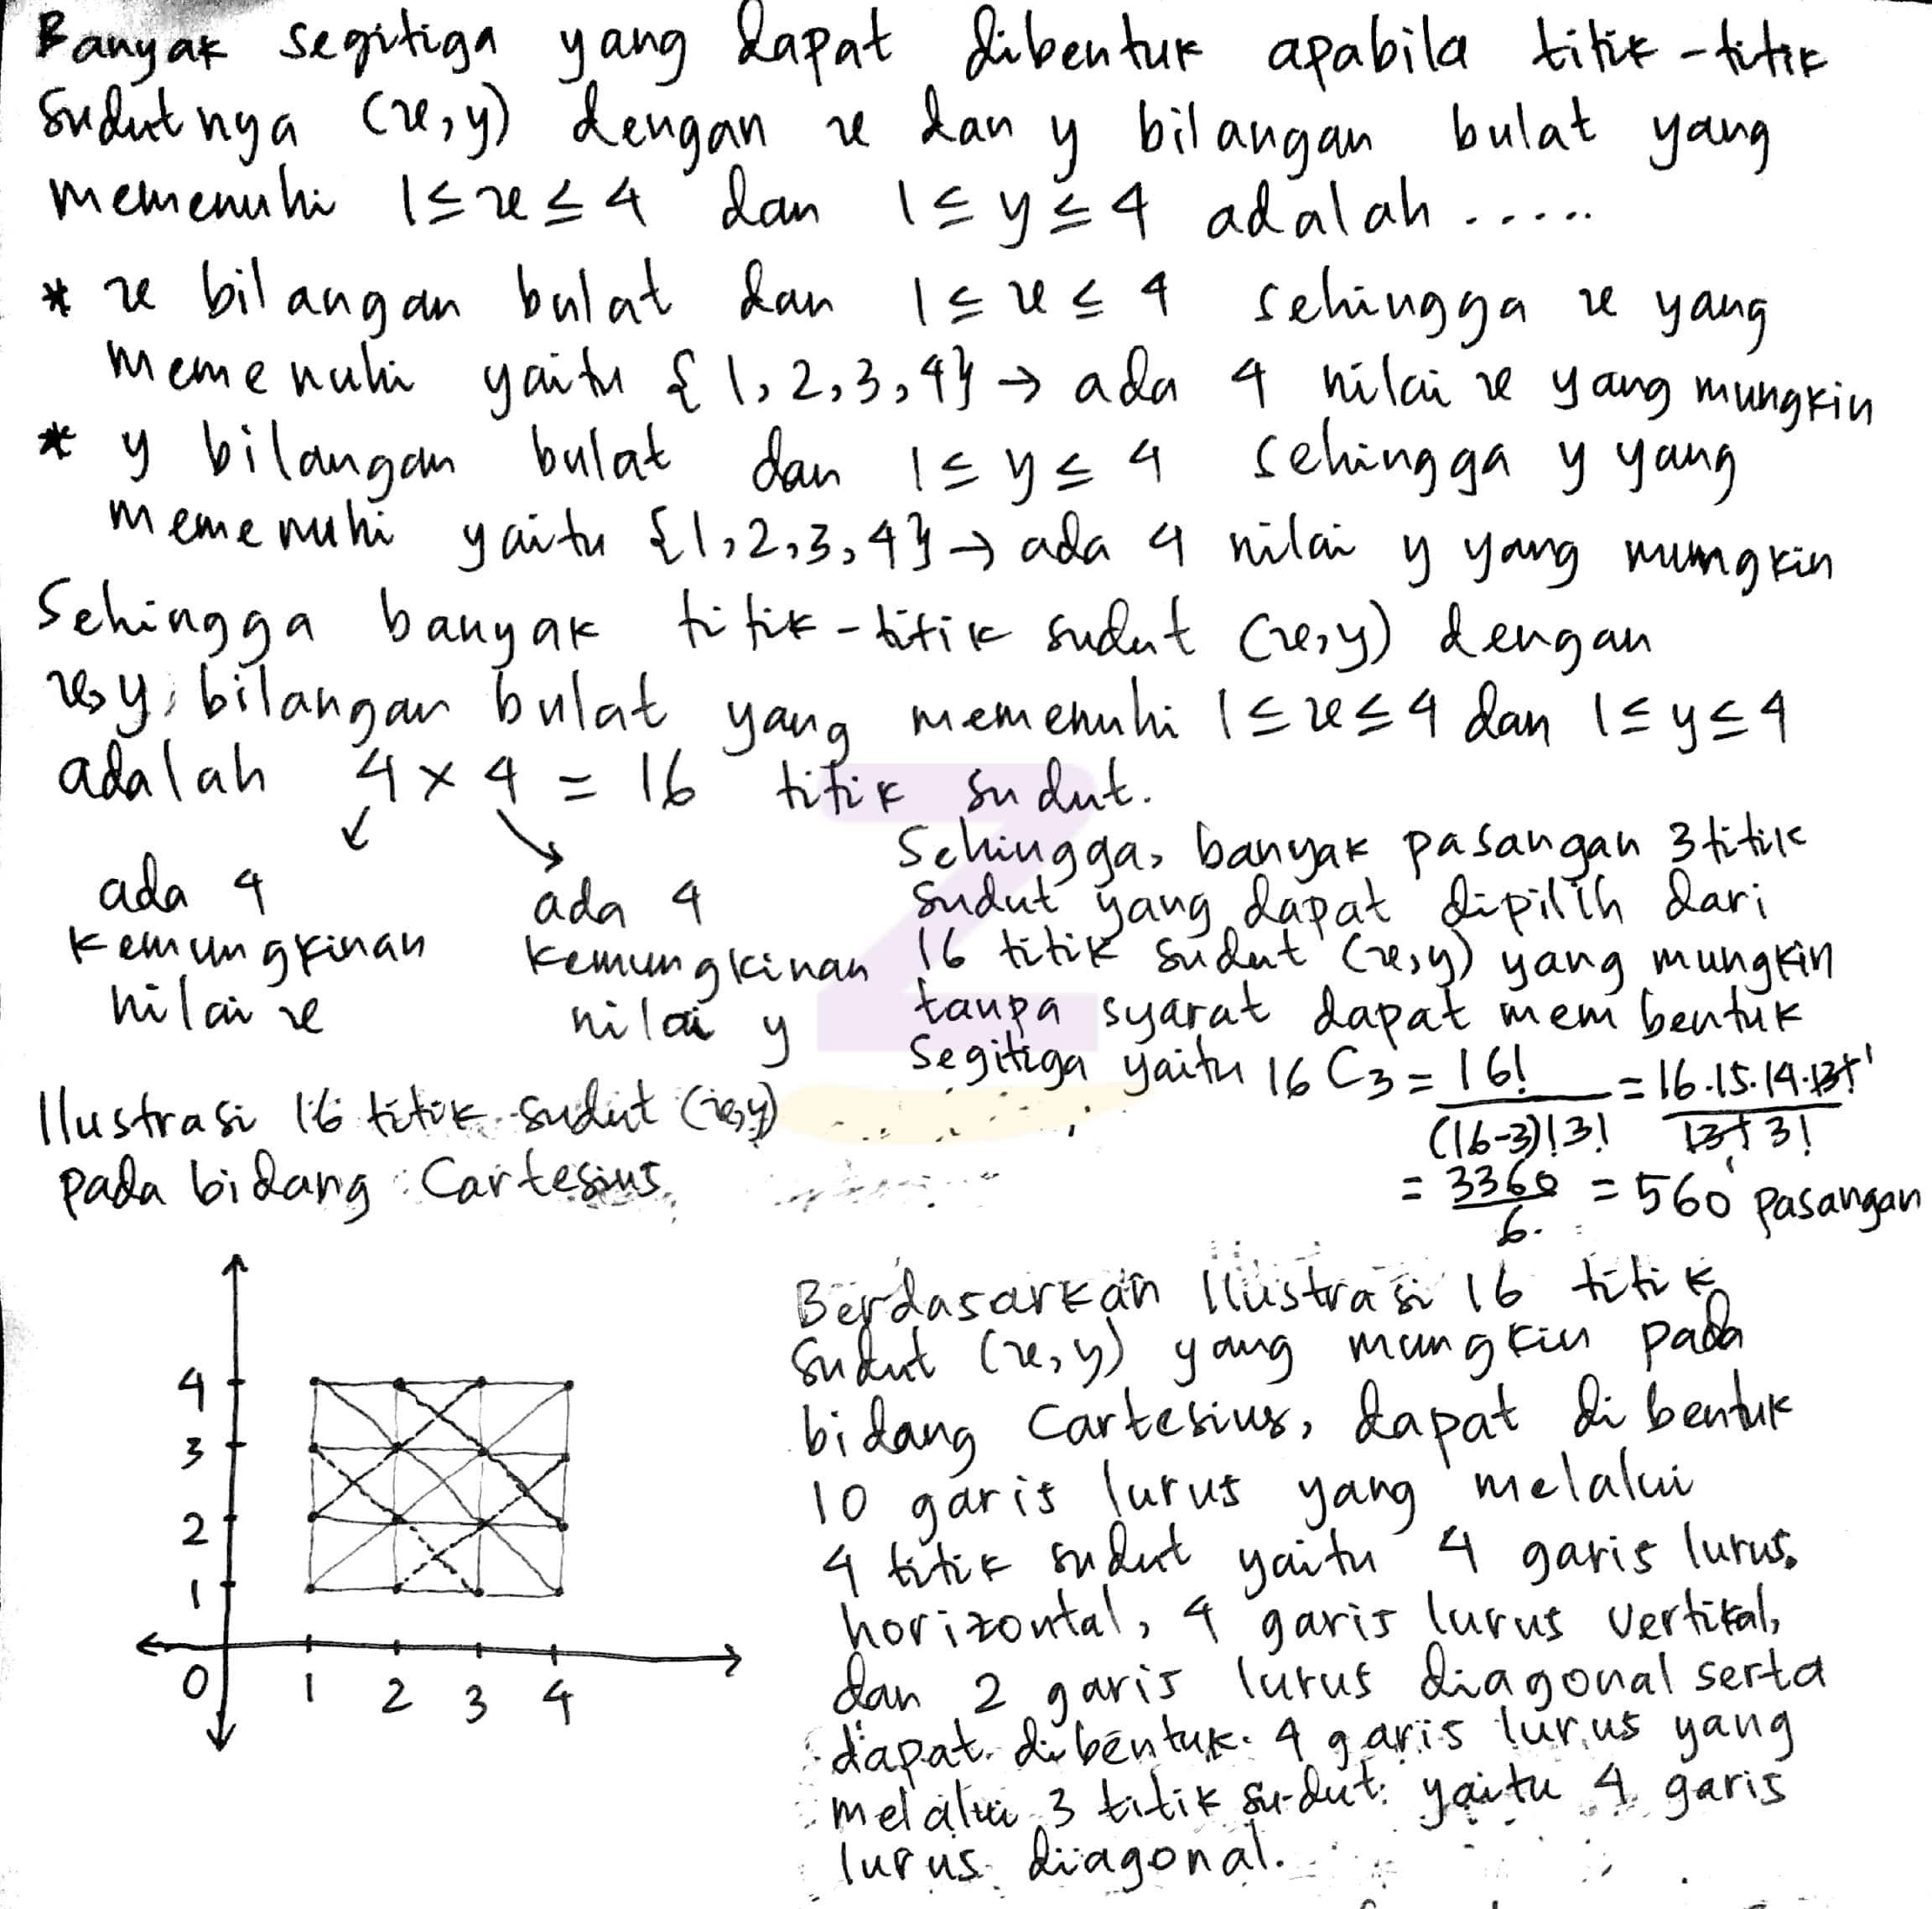 Banyak segitiga yang dapat dibentuk apabila titik-titik
sudutnya (x,y) dengan x dan y bilangan bulat yang
memenuhi 1≤x≤4 dan 1≤y≤4 adalah .....
* x bilangan bulat dan 1≤x≤4 sehingga x yang
memenuhi yaitu {1,2,3,4} → ada 4 nilai x yang mungkin
* y bilangan bulat dan 1≤y≤4 sehingga y yang
memenuhi yaitu {1,2,3,4} → ada 4 nilai y yang mungkin
Sehingga banyak titik-titik sudut (x,y) dengan
x,y bilangan bulat yang memenuhi 1≤x≤4 dan 1≤y≤4
adalah 4 × 4 = 16 titik sudut.
ada 4
kemungkinan
nilai x
ada 4
kemungkinan
nilai y
Sehingga, banyak pasangan 3 titik
sudut yang dapat dipilih dari
16 titik sudut (x,y) yang mungkin
tanpa syarat dapat membentuk
segitiga yaitu 16 C3 = 16!/(16-3)!3! = 16.15.14.13!/13! 3!
= 3360/6 = 560 pasangan
Ilustrasi 16 titik sudut (x,y)
pada bidang Cartesius
4
3
2
1
0 1 2 3 4
Berdasarkan Ilustrasi 16 titik
sudut (x,y) yang mungkin pada
bidang Cartesius, dapat dibentuk
10 garis lurus yang melalui
4 titik sudut yaitu 4 garis lurus
horizontal, 4 garis lurus vertikal,
dan 2 garis lurus diagonal serta
dapat dibentuk 4 garis lurus yang
melalui 3 titik sudut yaitu 4 garis
lurus diagonal.
Z